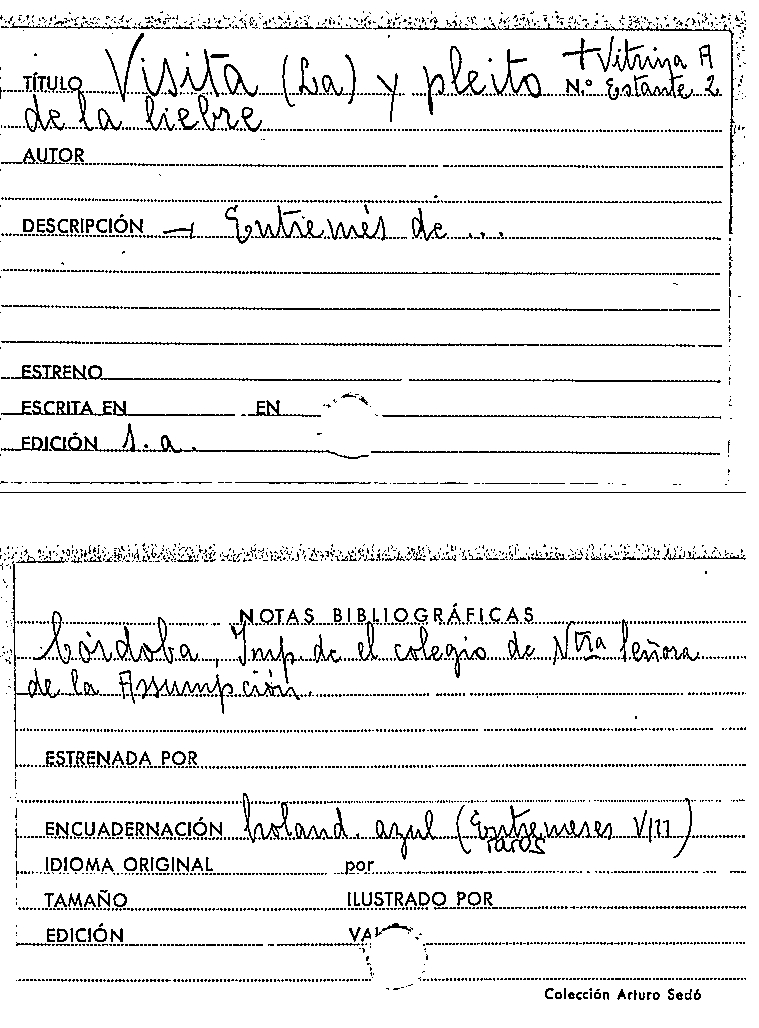 TÍTULO Visita (La) y pleito + Vitrina A
N.º Estante 2
de la liebre
AUTOR
DESCRIPCIÓN → Entremés de ...
ESTRENO
ESCRITA EN EN
EDICIÓN s. a.
NOTAS BIBLIOGRÁFICAS
Córdoba, Imp. de el colegio de Ntra Señora
de la Assumpción.
ESTRENADA POR
ENCUADERNACIÓN holand. azul (Entremeses VIII)
raros
IDIOMA ORIGINAL por
TAMAÑO ILUSTRADO POR
EDICIÓN
Colección Arturo Sedó